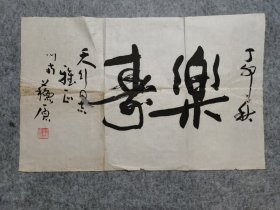 丁卯秋
樂壽
天行同志
雅正
川南